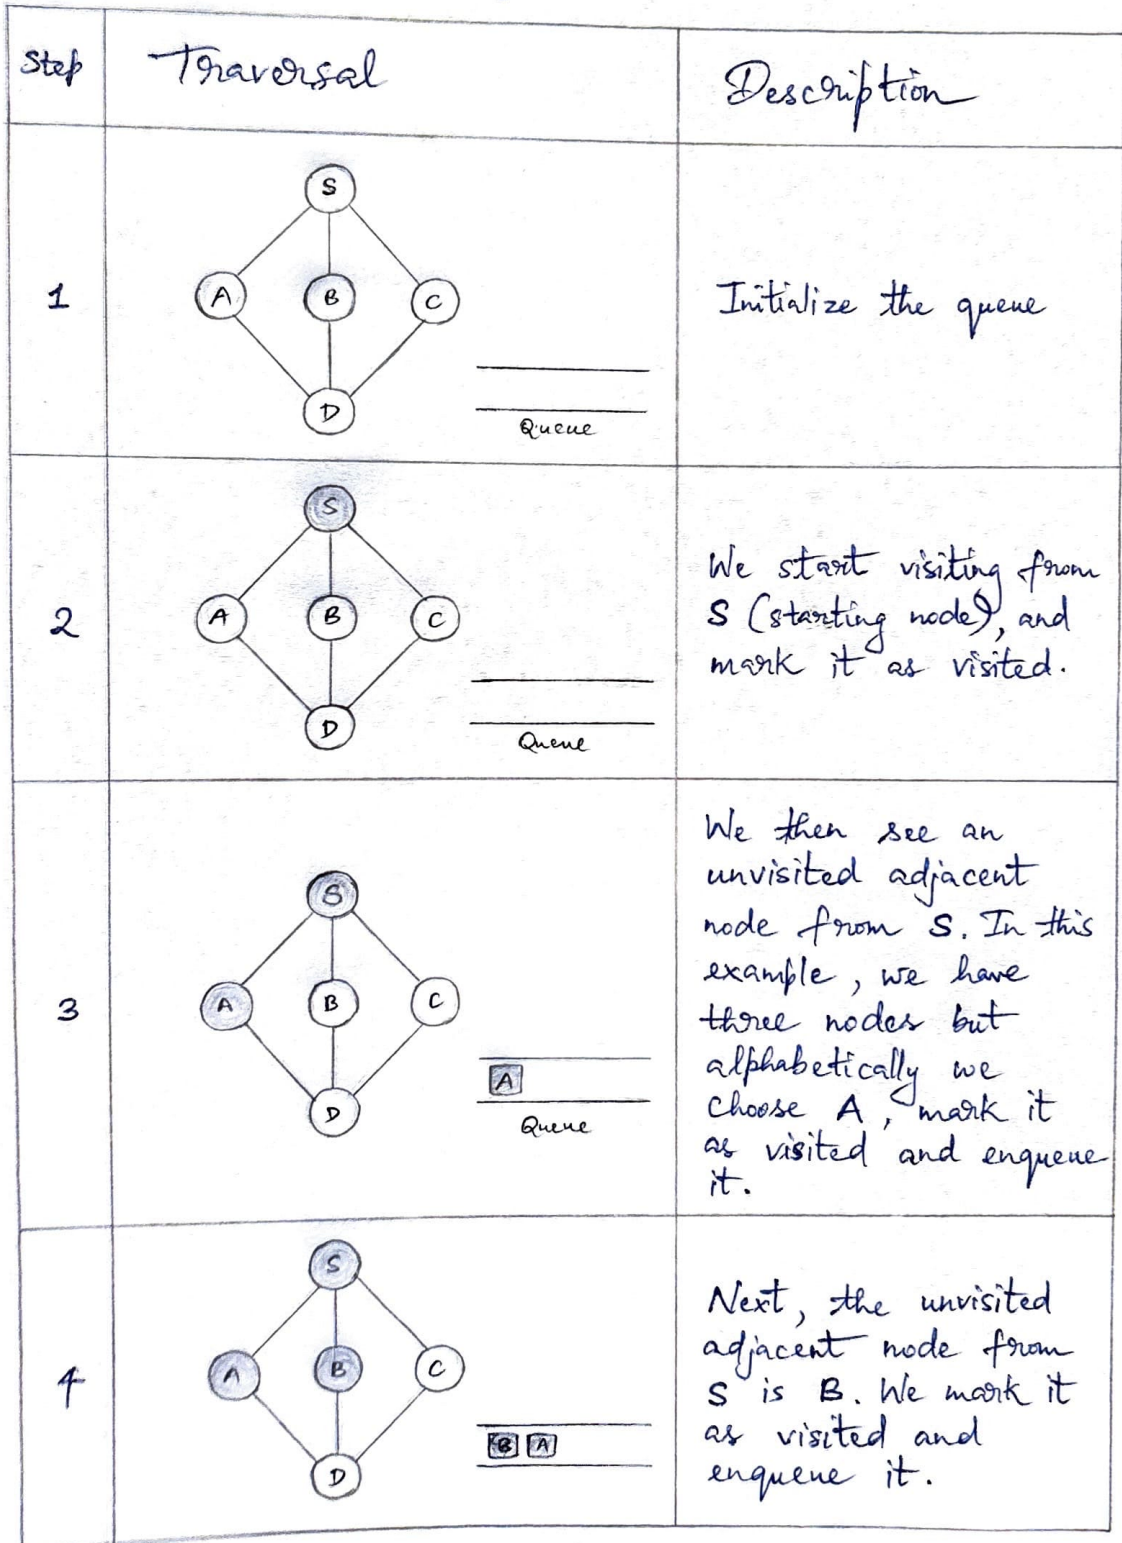 Step
Traversal
Description
1
S
A B C
D
Queue
Initialize the queue
2
S
A B C
D
Queue
We start visiting from
S (starting node), and
mark it as visited.
3
S
A B C
D
A
Queue
We then see an
unvisited adjacent
node from S. In this
example, we have
three nodes but
alphabetically we
choose A, mark it
as visited and enqueue
it.
4
S
A B C
D
B A
Next, the unvisited
adjacent node from
S is B. We mark it
as visited and
enqueue it.